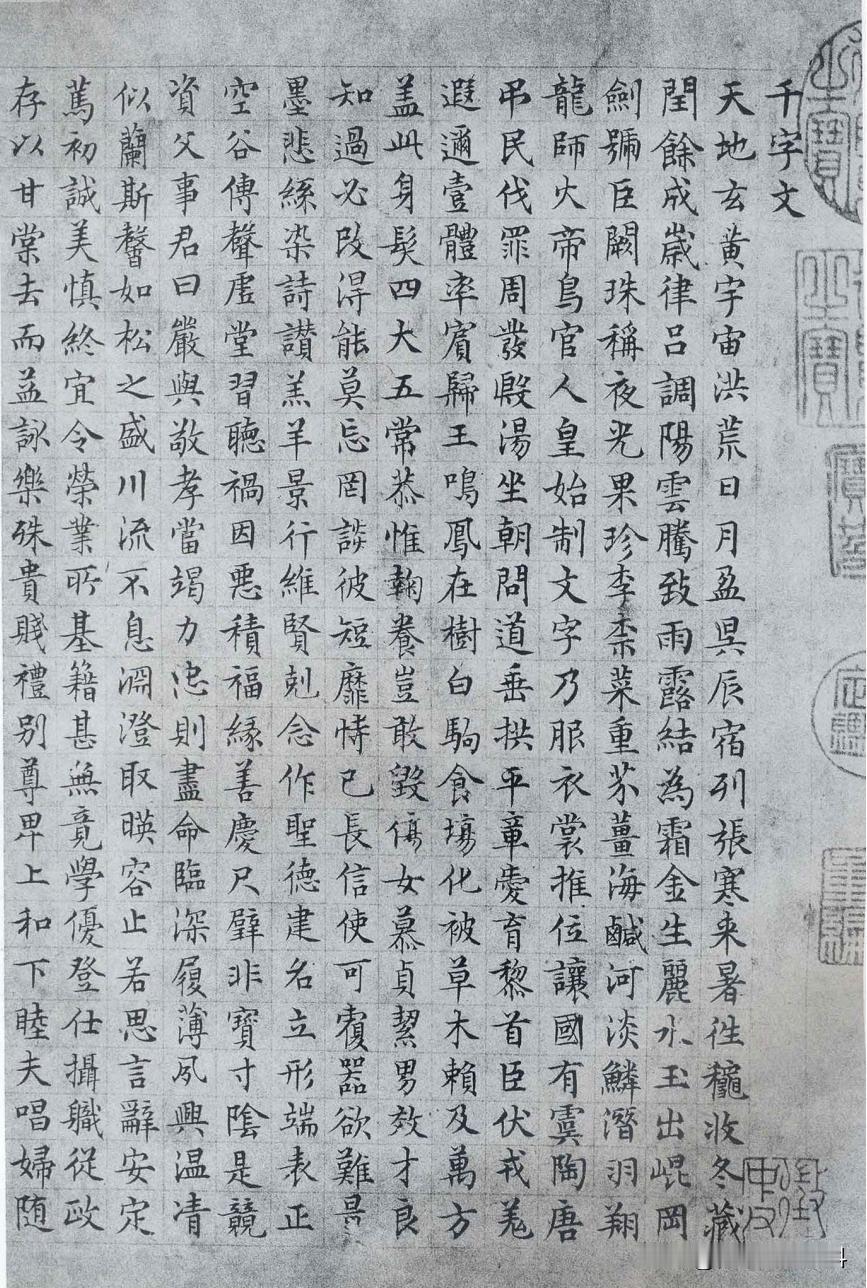 千字文
天地玄黃宇宙洪荒日月盈昃辰宿列張寒来暑徃穐收冬藏
閏餘成歲律吕調陽雲騰致雨露結為霜金生麗水玉出崐岡
劍號巨闕珠稱夜光果珍李柰菜重芥薑海鹹河淡鱗潛羽翔
龍師火帝鳥官人皇始制文字乃服衣裳推位讓國有虞陶唐
吊民伐罪周發殷湯坐朝問道垂拱平章愛育黎首臣伏戎羌
遐邇壹體率賓歸王鳴鳳在樹白駒食場化被草木賴及萬方
盖此身髮四大五常恭惟鞠養豈敢毀傷女慕貞絜男效才良
知過必改得能莫忘罔談彼短靡恃己長信使可覆器欲難量
墨悲絲染詩讚羔羊景行維賢剋念作聖德建名立形端表正
空谷傳聲虛堂習聽禍因惡積福緣善慶尺璧非寶寸陰是競
資父事君曰嚴與敬孝當竭力忠則盡命臨深履薄夙興温凊
似蘭斯馨如松之盛川流不息淵澄取暎容止若思言辭安定
篤初誠美慎終宜令榮業所基籍甚無竟學優登仕攝職從政
存以甘棠去而益詠樂殊貴賤禮別尊卑上和下睦夫唱婦随